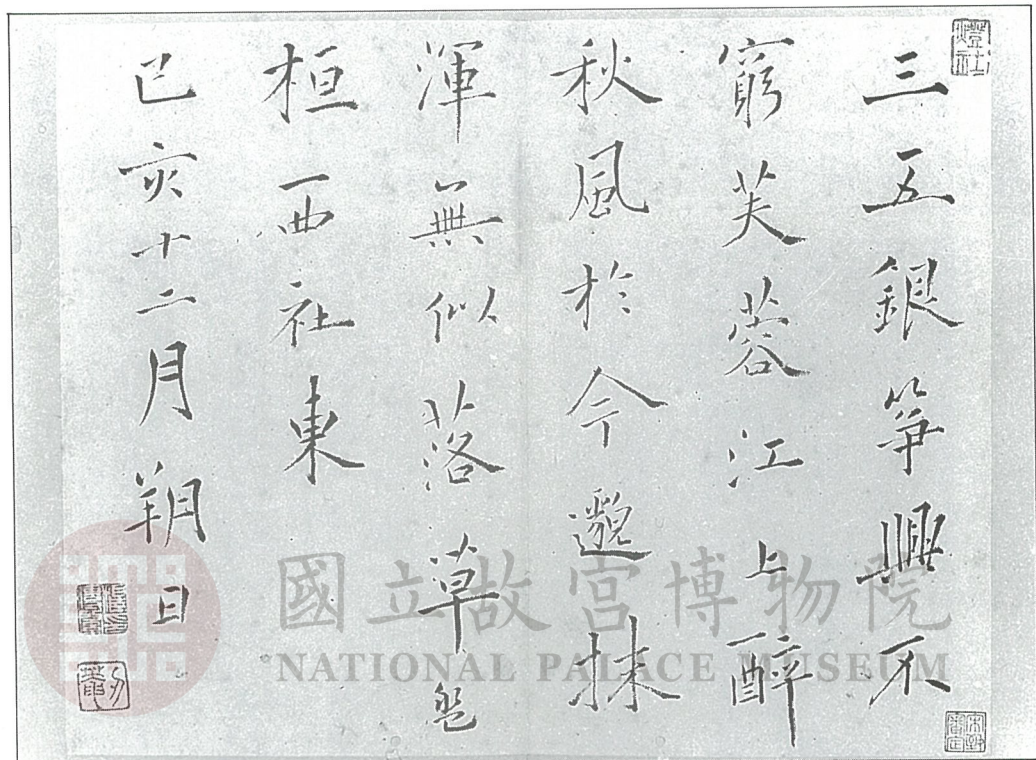 三五銀箏興不
窮芙蓉江上醉
秋風於今邈
渾無似落草盤
桓西社東
己亥十二月朔日
國立故宮博物院
NATIONAL PALACE MUSEUM